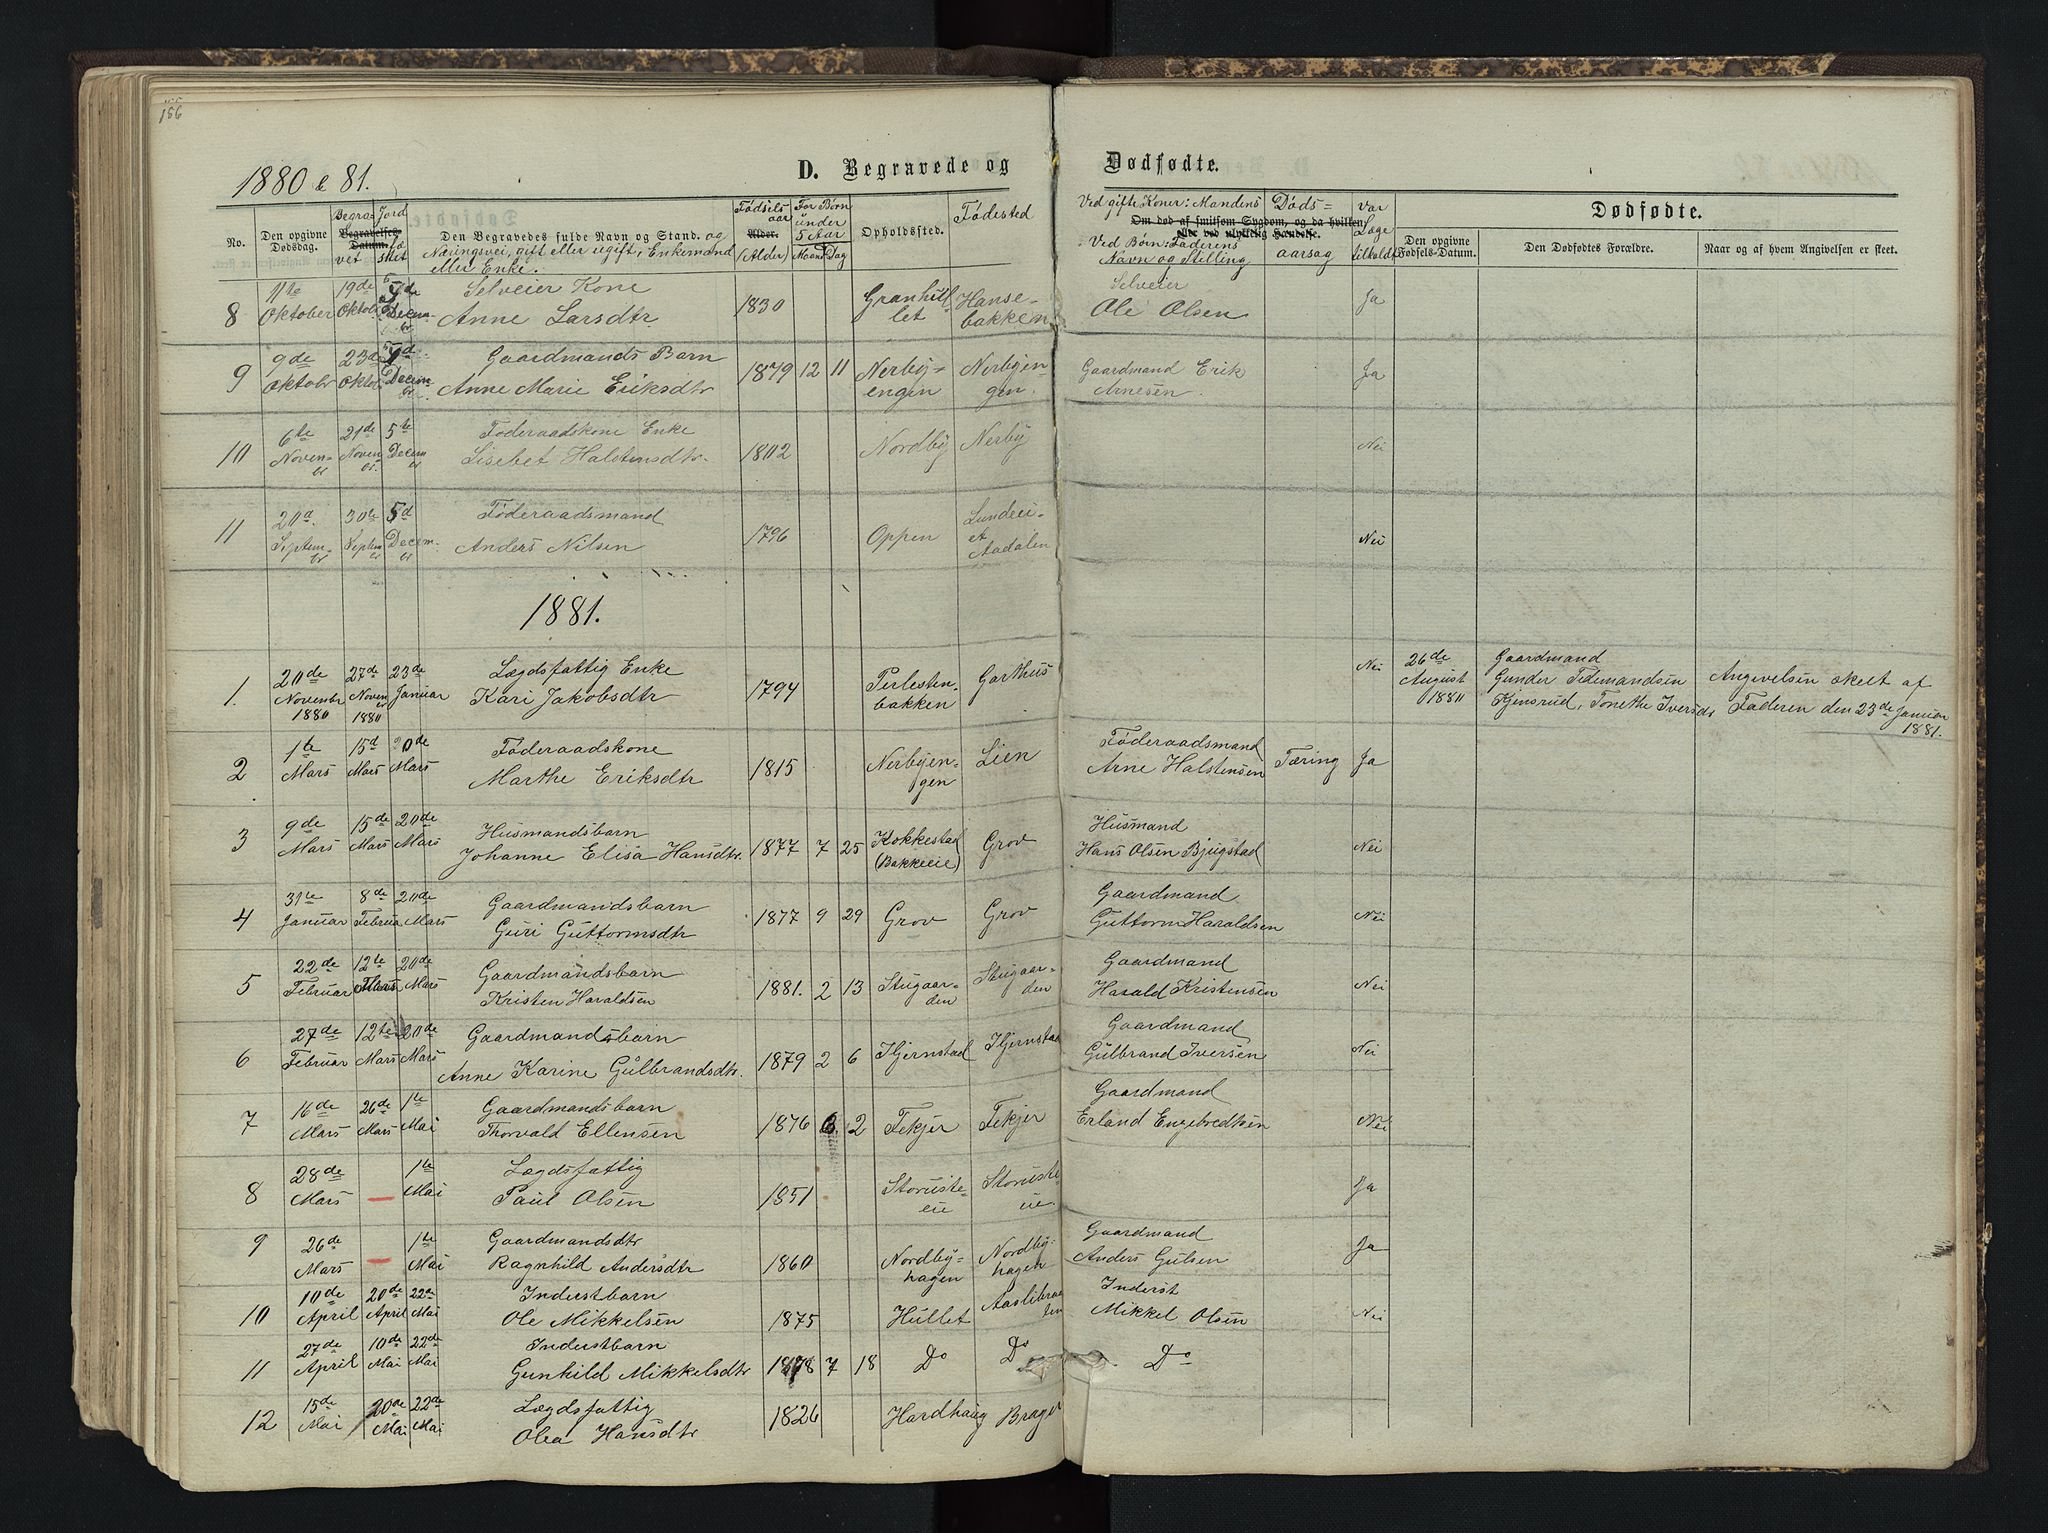 156
1880 & 81.
D. Begravede og Dødfødte.
No.
Den opgivne Dødsdag.
Begravet
Begravelses-Datum.
Jordfæstet
Den Begravedes fulde Navn og Stand. og
Næringsvei, gift eller ugift, Enkemand
eller Enke.
Fødselsaar
Alder.
(Alder)
For Børn under 5 Aar
Maaned Dag
Opholdssted.
Fødested
Ved gifte Koner: Mandens
Om død af smitsom Sygdom, og da hvilken,
eller ved ulykkelig Hændelse.
Ved Børn: Faderens
Navn og Stilling
Dødsaarsag
Var Læge tilkaldt
Dødfødte.
Den opgivne Fødsels-Datum.
Den Dødfødtes Forældre.
Naar og af hvem Angivelsen er skeet.
8 11te Oktober 19de Oktob 5de December Selveier Kone 1830 Granhullet Hansebakken Selveier Ja
Anne Larsdtr Ole Olsen
9 9de Oktobr 23de Oktob 5d December Gaardmands Barn 1879 12 11 Nerbyengen Nerbyengen. Gaardmand Erik Ja
Anne Marie Eriksdtr Arnesen.
10 6te Novenbr 21de Novenbr. 5te Decembr Føderaadskone Enke 1802 Nordby Nerby Nei
Lisebet Halstensdtr.
11 20d. Septembr 30te Septembr 5d December Føderaadsmand 1796 Oppen Lundeeiet Aadalen Nei
Anders Nilsen
1881.
1. 20de Novenbr 1880 27de Novenbr 1880 23de Januar Lægdsfattig Enke 1794 Perlestenbakken Garthus Nei 26de August 1880 Gaardmand
Kari Jakobsdtr Gunder Tidemandsen Angivelsen skelt af
Hjensrud, Tonethe Iversdr Faderen den 23de Januar
1881.
2 1te Mars 15d Mars 20de Mars Føderaadskone 1815 Nerbyengen Lien Føderaadsmand Tæring Ja
Marthe Eriksdtr Arne Halstensen
3 9de Mars 15de Mars 20de Mars Husmandsbarn 1877 7 25 Kokkestad (Bakkeeie) Grov Husmand Nei
Johanne Elisa Hansdtr. Hans Olsen Bjugstad
4 31te Januar 8de Februa 20de Mars Gaardmandsbarn 1877 9 29 Grov Grov Gaardmand Nei
Guri Guttormsdtr Guttorm Haraldsen
5 22de Februar 12te Mars 20de Mars Gaardmandsbarn 1881. 2 13 Stugaarden Stugaarden Gaardmand Nei
Kristen Haraldsen Harald Kristensen
6 27de Februar 12te Mars 20de Mars Gaardmandsbarn 1879 2 6 Hjernstad Hjernstad Gaardmand Nei
Anne Karine Gulbrandsdtr. Gulbrand Iversen
7 16de Mars 26de Mars 1te Mai Gaardmandsbarn 1876 2 Tekjer Tekjer Gaardmand Nei
Thorvald Ellensen Erland Engebredtsen
8 28de Mars — 1te Mai Lægdsfattig 1851 Ja
Paul Olsen
9 26de Mars — 1te Mai Gaardmandsdtr 1860 Nordbyhagen Nordbyhagen Gaardmand Ja
Ragnhild Andersdtr Anders Gulsen
10 10de April 20de April 22de Mai Inderstbarn 1875 Hullet Inderst Nei
Ole Mikkelsen Mikkel Olsen
11 27de April 10de Mai 22de Mai Inderstbarn 1878 7 18 Do Do Do
Gunhild Mikkelsdtr
12 15de Mai 20de Mai 22de Mai Lægdsfattig 1826 Hardhaug Brager
Olea Hansdtr